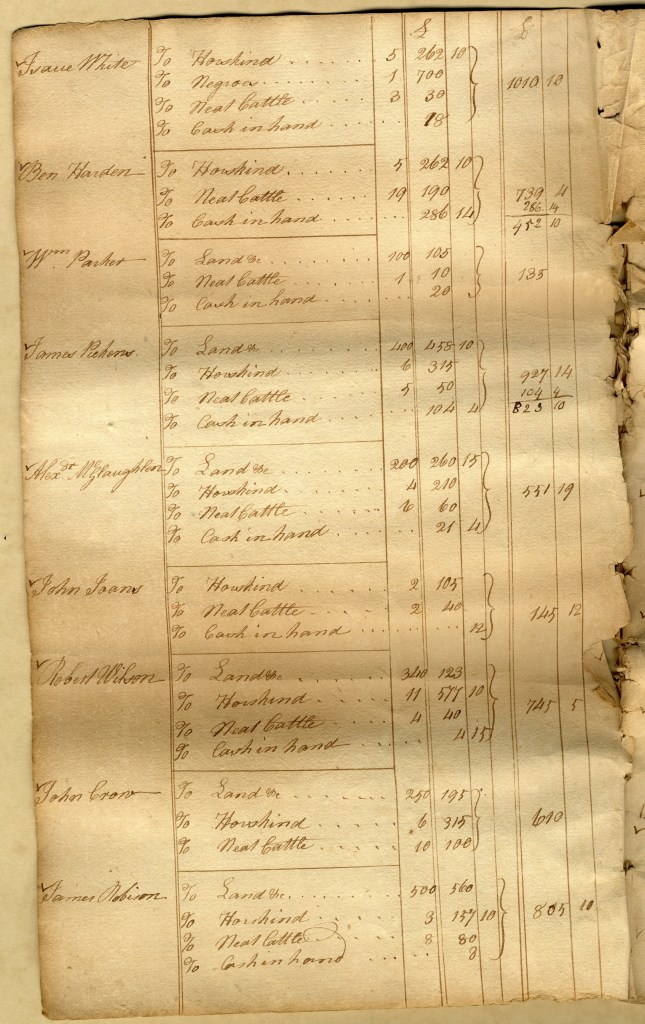 £ £
Isaac White To Horskind 5 262 10
To Negroes 1 700 1010 10
To Neat Cattle 3 30
To Cash in hand 18
Ben Harden To Horskind 5 262 10
To Neat Cattle 19 190 739 4
To Cash in hand 286 14 286 14
452 10
Wm Parker To Land &c 100 105
To Neat Cattle 1 10 135
To Cash in hand 20
James Pickens To Land &c 400 458 10
To Horskind 6 315 927 14
To Neat Cattle 5 50 104 4
To Cash in hand 104 4 823 10
Alexdr McGlaughlen To Land &c 200 260 15
To Horskind 4 210 551 19
To Neat Cattle 6 60
To Cash in hand 21 4
John Joans To Horskind 2 105
To Neat Cattle 2 40 145 12
To Cash in hand 12
Robert Wilson To Land &c 340 123
To Horskind 11 577 10 745 5
To Neat Cattle 4 40
To Cash in hand 4 15
John Crow To Land &c 250 195
To Horskind 6 315 610
To Neat Cattle 10 100
James Robison To Land &c 500 560
To Horskind 3 157 10 805 10
To Neat Cattle 8 80
To Cash in hand 8